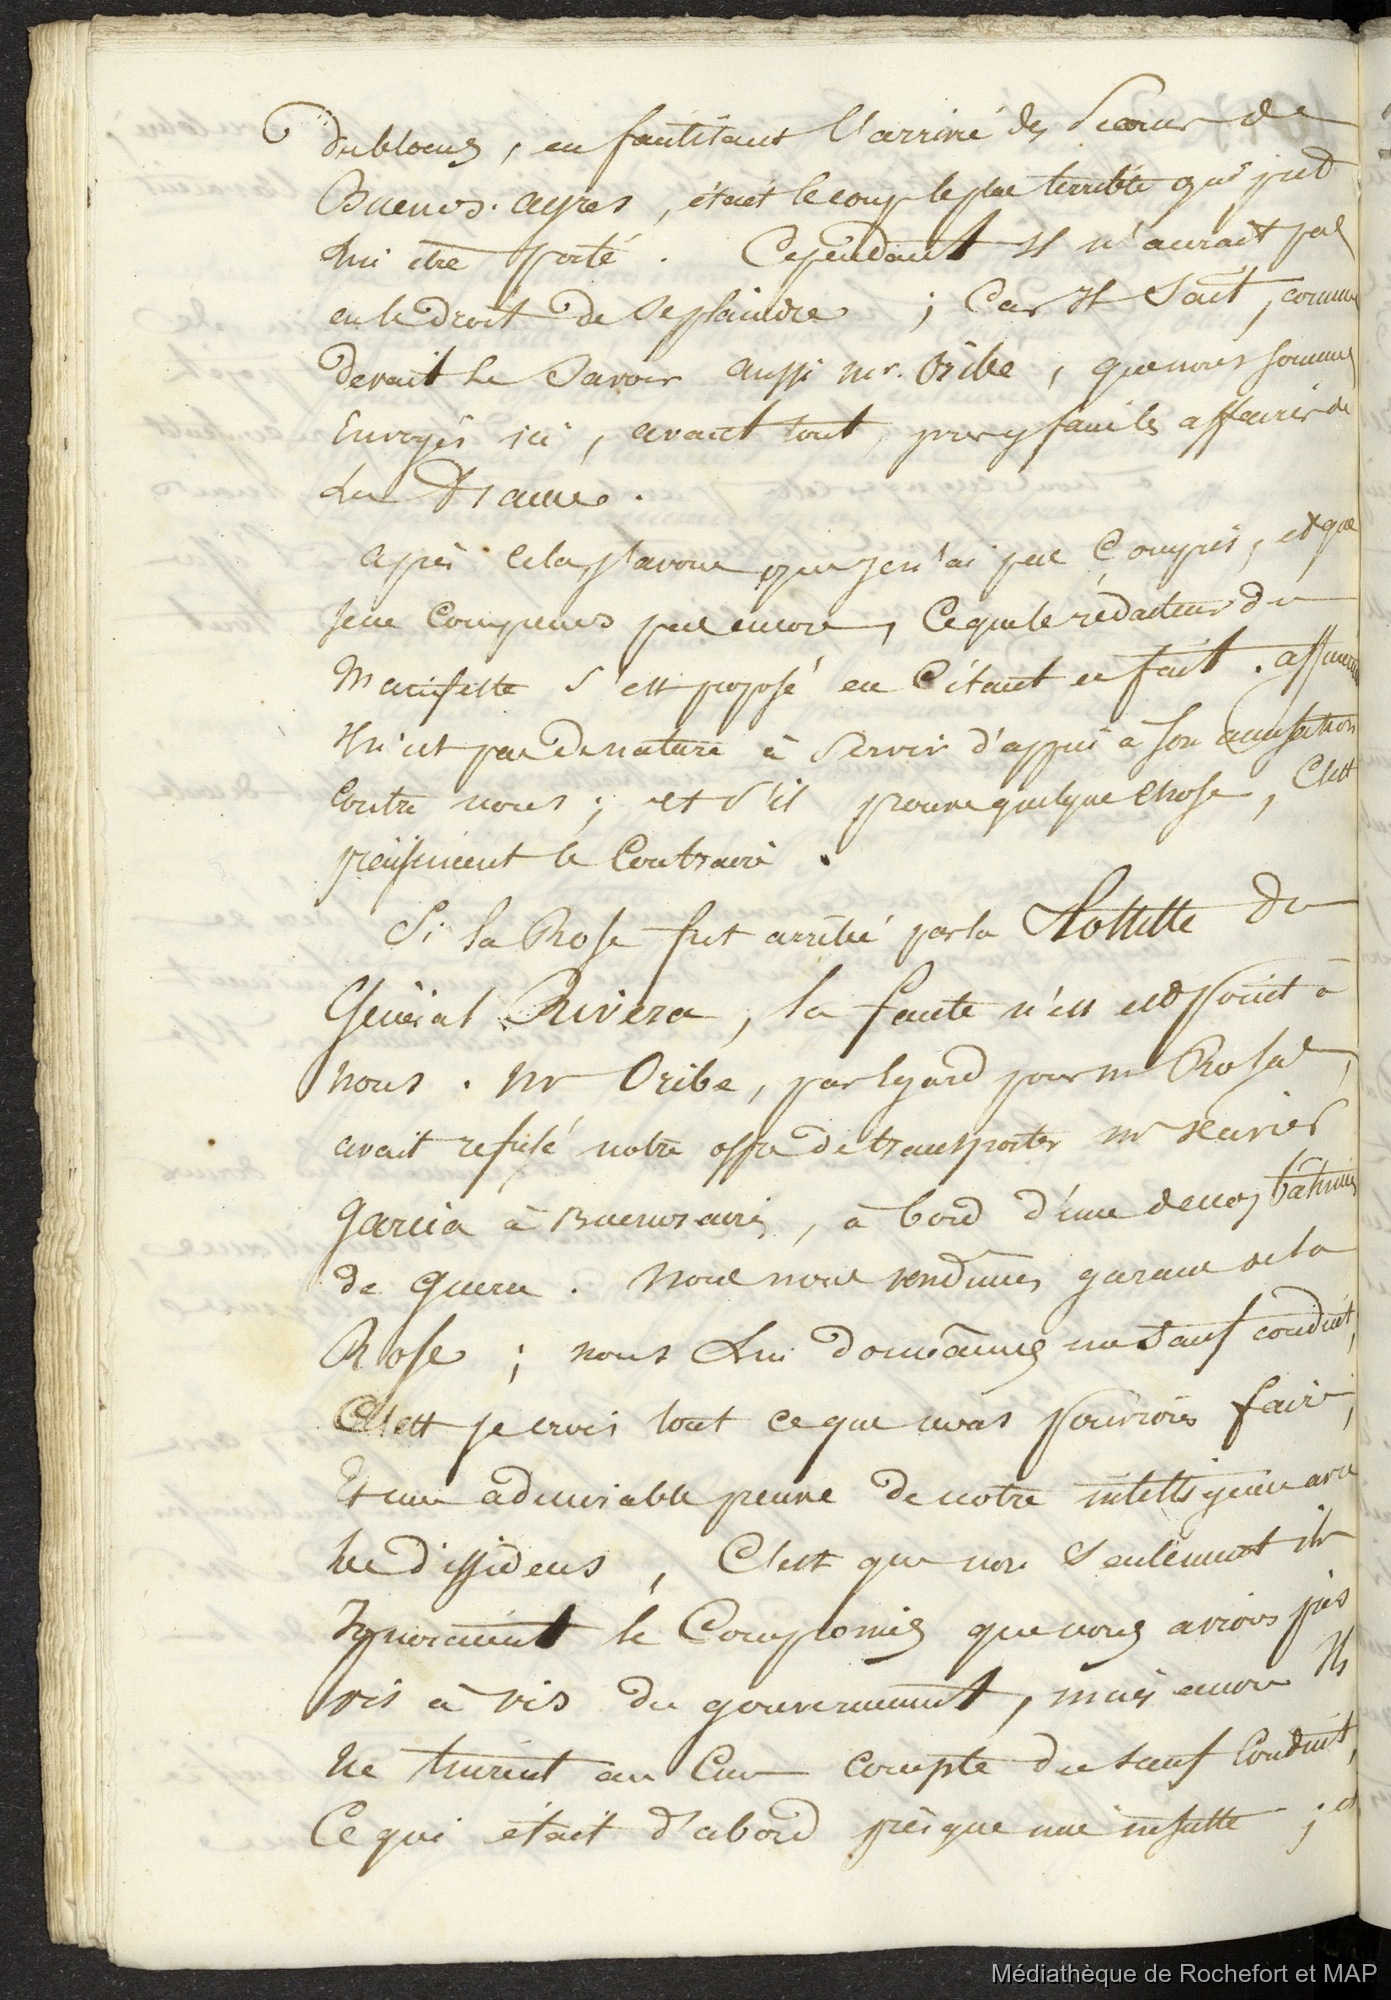 du blocus, en facilitant l'arrivé des secours de
Buenos-ayres, était le coup le plus terrible qui put
lui être porté. Cependant Il n'aurait pas
eu le droit de se plaindre ; Car Il sait, comme
devait le savoir aussi mr. Oribe, que nous sommes
Envoyés ici, avant tout, pour y faire les affaires de
La France.
après cela j'avoue que je n'ai pas Compris, et que
je ne Comprends pas encore, Ce que le rédacteur du
Manifeste s'est proposé en Citant ce fait. assurément
Il n'est pas de nature à servir d'appui à son accusation
Contre nous ; et s'il prouve quelque chose, C'est
précisément le Contraire.
Si la Rosa fut arrêtée par la flottille du
Général Rivera, la faute n'en est point à
nous. mr Oribe, par égard pour mr Rosas,
avait refusé notre offre de transporter mr
Garcia à Buenos aires, à bord d'un de nos bâtimens
de Guerre. Nous nous rendîmes garans de la
Rosa ; nous Lui donnâmes un sauf conduit,
C'est je crois tout ce que nous pouvions faire,
Et une admirable preuve de notre intelligence avec
les dissidens, C'est que non seulement ils
Ignoraient le Compromis que nous avions pris
vis à vis du gouvernement, mais encore Ils
Ne tinrent au Cun compte du sauf Conduit,
Ce qui était d'abord presque une insulte ; et
Médiathèque de Rochefort et MAP